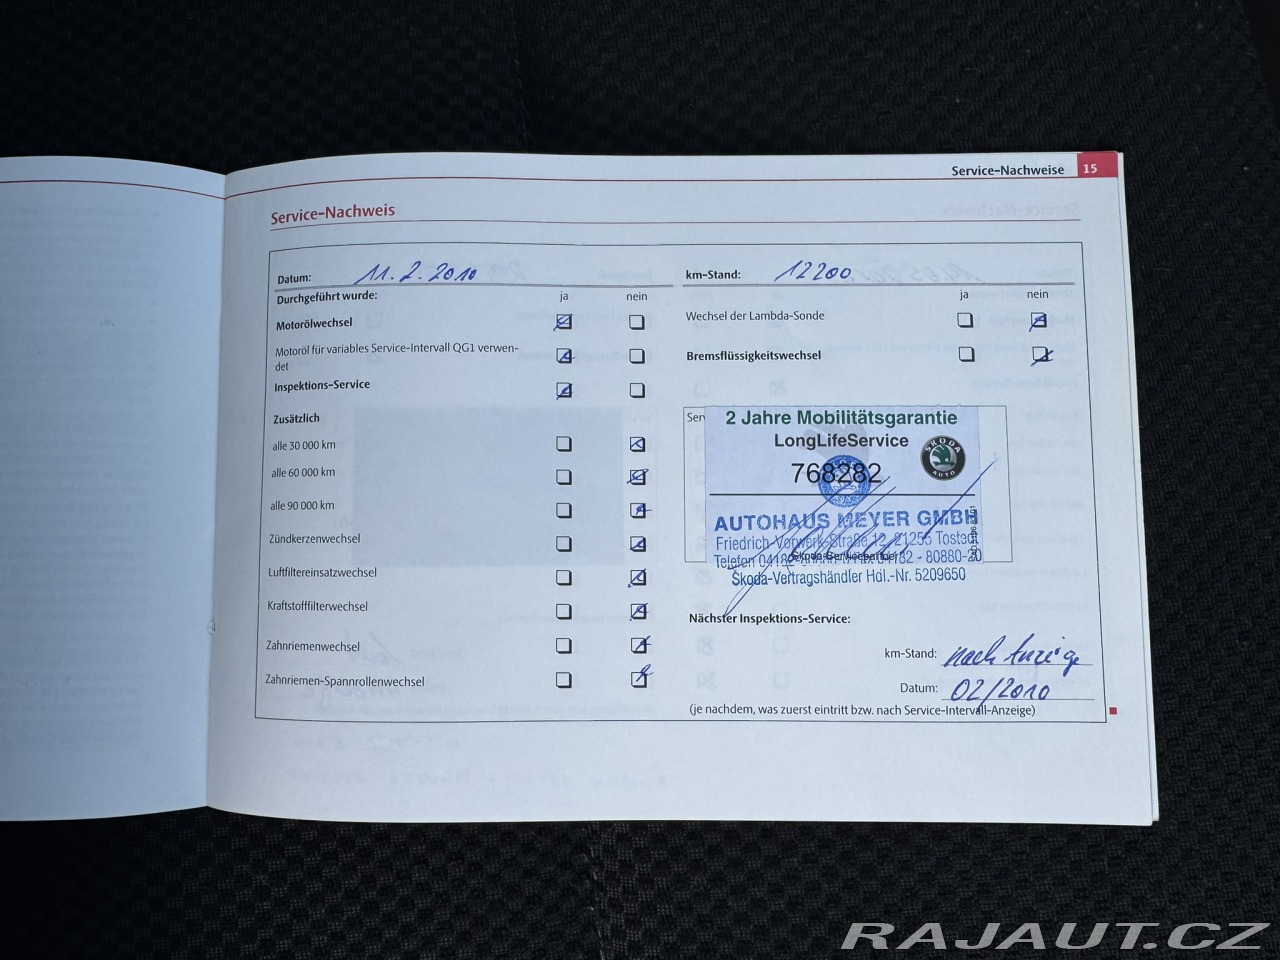 Service-Nachweise 15
Service-Nachweis
Datum: 11.2.2010
km-Stand: 12200
Durchgeführt wurde: ja nein
ja nein
Motorölwechsel
Wechsel der Lambda-Sonde
Motoröl für variables Service-Intervall QG1 verwen-
det
Bremsflüssigkeitswechsel
Inspektions-Service
Zusätzlich
alle 30 000 km
alle 60 000 km
alle 90 000 km
Zündkerzenwechsel
Luftfiltereinsatzwechsel
Kraftstofffilterwechsel
Zahnriemenwechsel
Zahnriemen-Spannrollenwechsel
2 Jahre Mobilitätsgarantie
LongLifeService
768282
SKODA
AUTO
AUTOHAUS MEYER GMBH
Friedrich-Vorwerk-Straße 12, 21255 Tostedt
Telefon 04182- 80880-20
Škoda-Servicepartner
Škoda-Vertragshändler Hdl.-Nr. 5209650
Nächster Inspektions-Service:
km-Stand: nach Anzeige
Datum: 02/2010
(je nachdem, was zuerst eintritt bzw. nach Service-Intervall-Anzeige)
RAJAUT.CZ